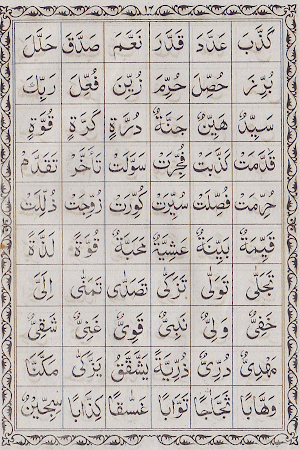 ١٣
كَذَّبَ عَدَّدَ قَدَّرَ نَعَّمَ صَدَّقَ حَلَّلَ
بُرِّزَ حُصِّلَ حُرِّمَ زُيِّنَ فُعِّلَ رَبِّكَ
سَيِّدٌ هَيِّنٌ جَنَّةٌ دُرَّةٌ كَرَّةٌ قُوَّةٌ
قَدَّمَتْ كَذَّبَتْ فُجِّرَتْ سَوَّلَتْ تَأَخَّرَ تَقَدَّمَ
حُرِّمَتْ فُصِّلَتْ سُيِّرَتْ كُوِّرَتْ زُوِّجَتْ ذُلِّلَتْ
قَيِّمَةٌ بَيِّنَةٌ عَشِيَّةٌ مَحَبَّةٌ قُوَّةٌ لَذَّةٌ
تَجَلّٰى تَوَلّٰى تَزَكّٰى تَصَدّٰى تَمَنّٰى اِلَىَّ
خَفِىٌّ وَلِىٌّ نَبِىٌّ قَوِىٌّ غَنِىٌّ شَقِىٌّ
مَهْدِىٌّ دُرِّىٌّ ذُرِّيَّةٌ يَشَّقَّقُ يَزَّكّٰى مَكَّنَّا
وَهَّابًا ثَجَّاجًا تَوَّابًا غَسَّاقًا كِذَّابًا سِجِّيْنٌ